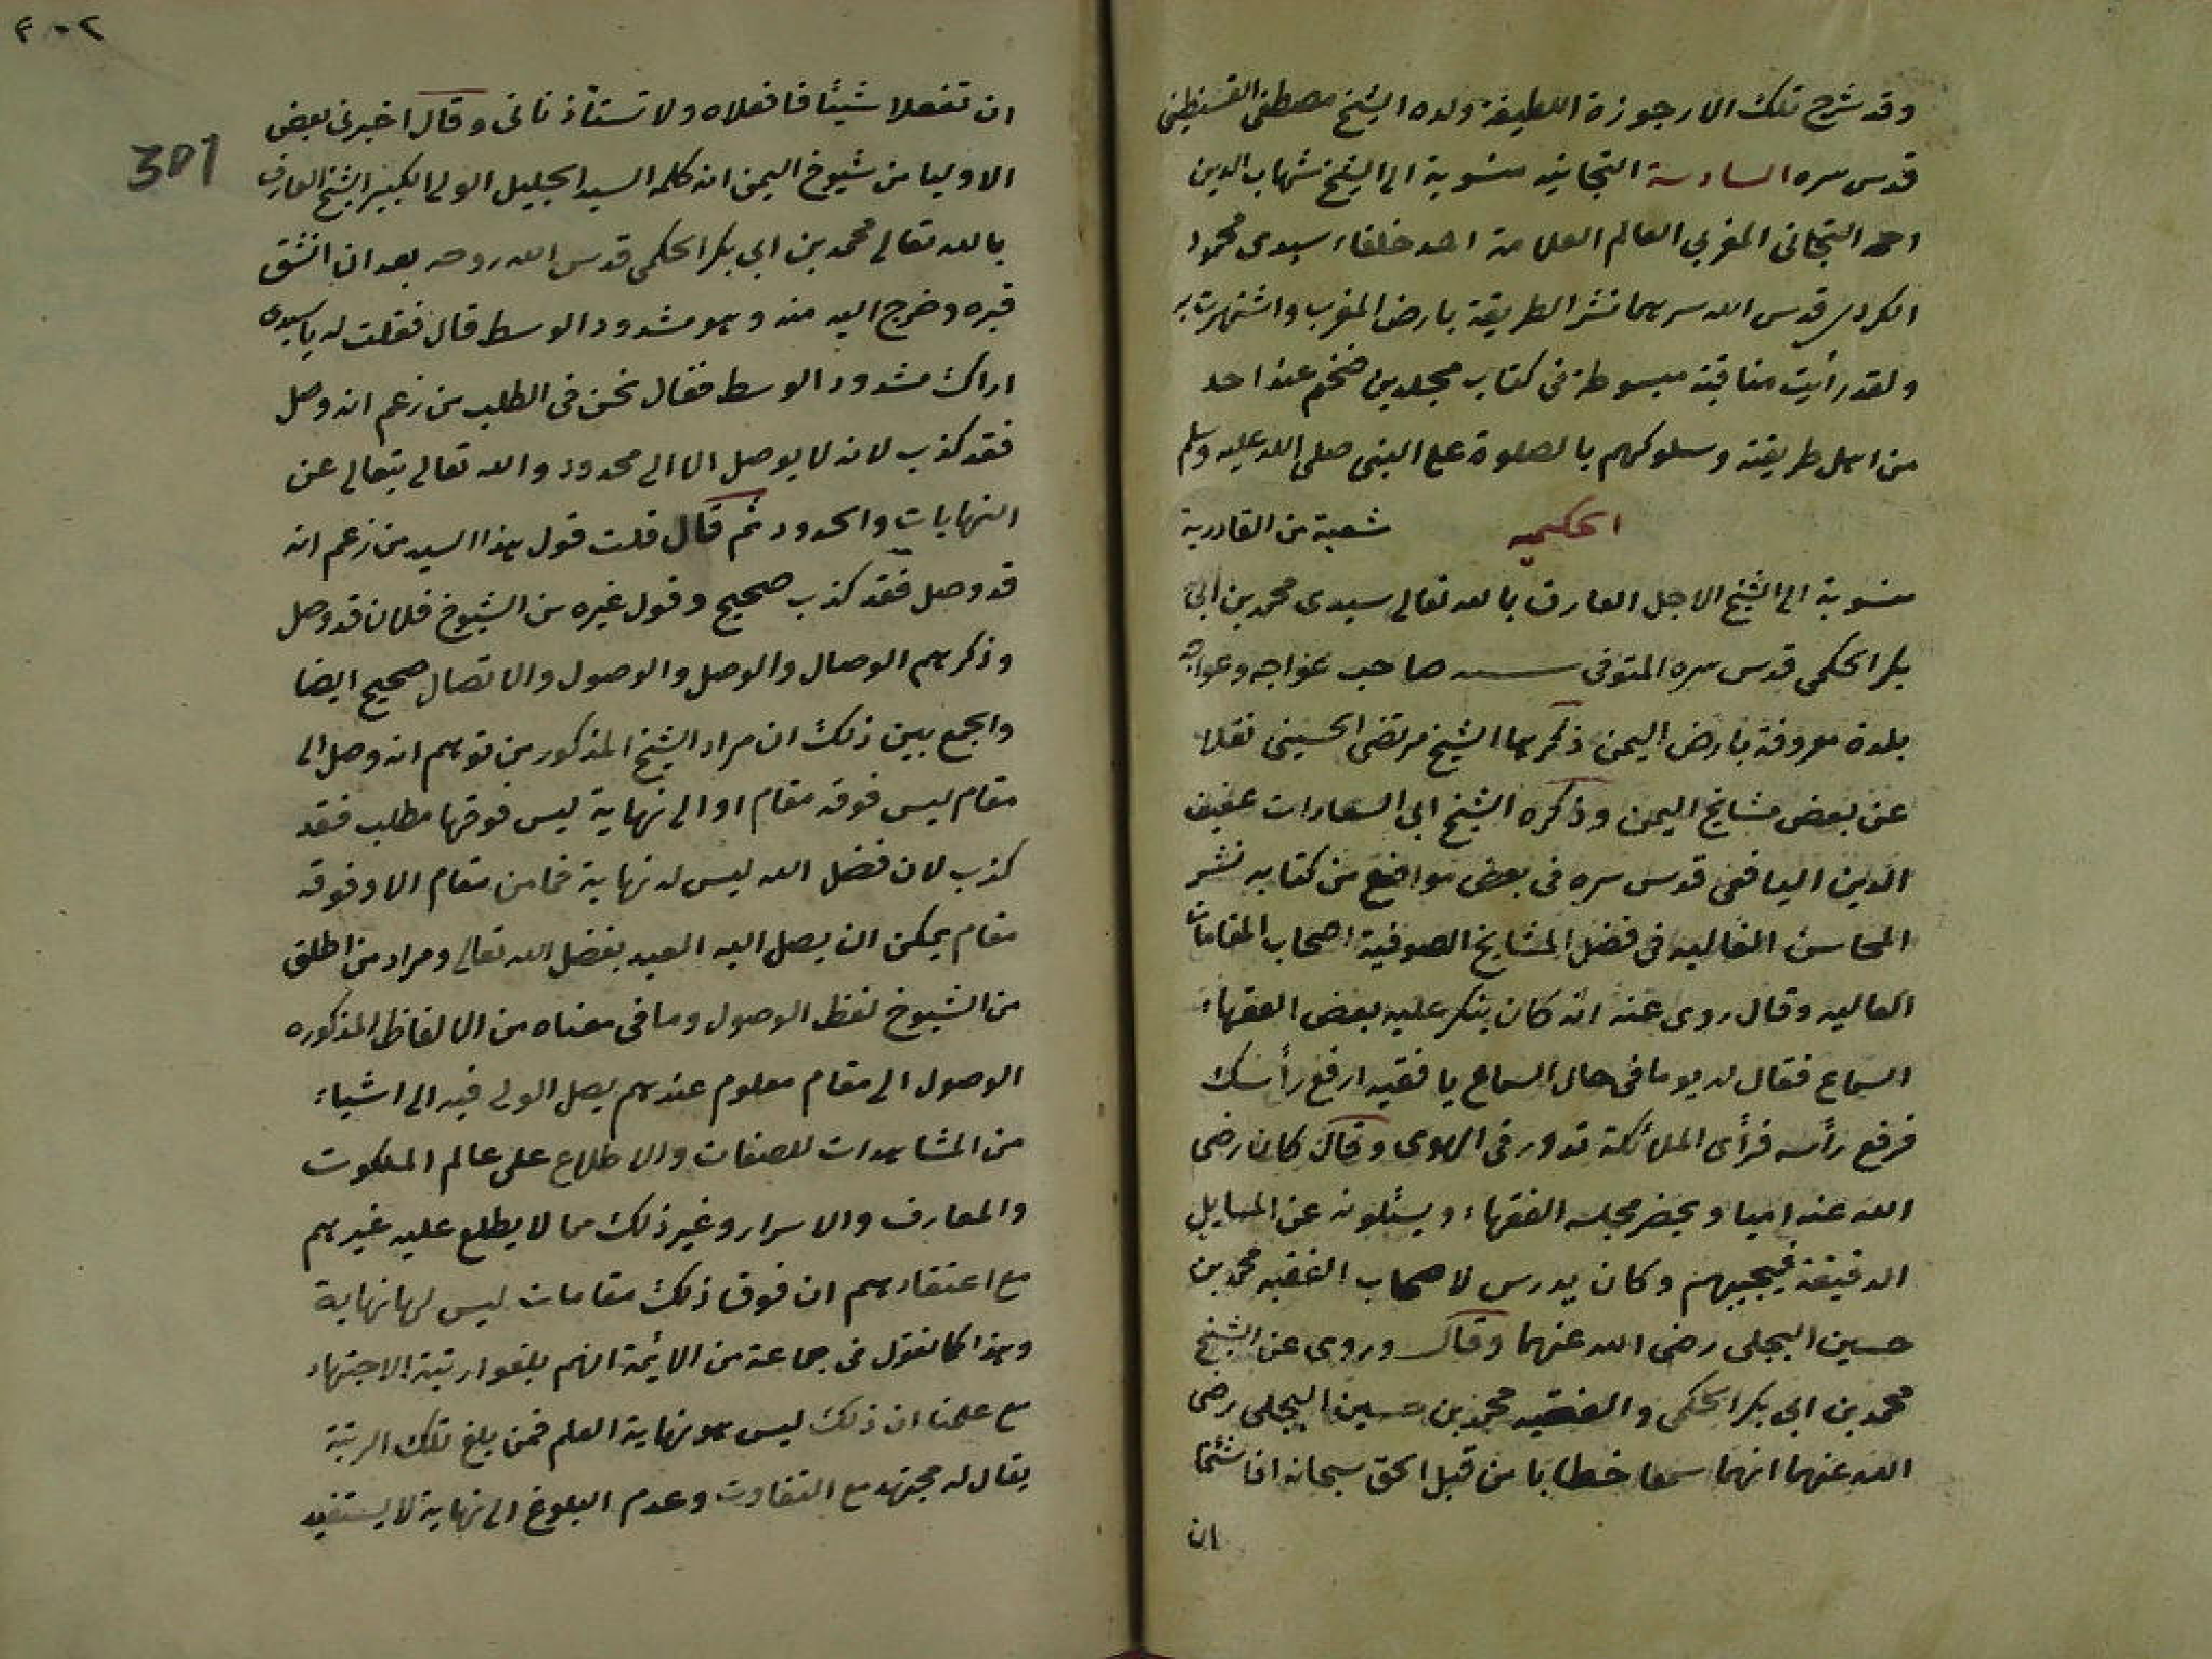 وقد شرح تلك الارجوزة اللطيفة ولده الشيخ مصطفى القسنطينى
قدس سره السادسة التجانيه منسوبة الى الشيخ شهاب الدين
احمد التجانى المغربى العالم العلامة احد خلفاء سيدى محمود
الكردى قدس الله سرهما نشر الطريقة بارض المغرب واشتهرت به
ولقد رأيت مناقبه مبسوطة فى كتاب مجلدين ضخم عند احد
من اهل طريقته وسلوكهم بالصلوة على النبى صلى الله عليه وسلم
الحكميه شعبة من القادرية
منسوبة الى الشيخ الاجل العارف بالله تعالى سيدى محمد بن ابى
بكر الحكمى قدس سره المتوفى سنه صاحب عواجه وعواجه
بلدة معروفة بارض اليمن ذكرها الشيخ مرتضى الحسينى نقلا
عن بعض مشايخ اليمن وذكره الشيخ ابى السعادات عفيف
الدين اليافعى قدس سره فى بعض مواضع من كتابه نشر
المحاسن الغاليه فى فضل المشايخ الصوفية اصحاب المقامات
العاليه وقال روى عنه انه كان ينكر عليه بعض الفقهاء
السماع فقال له يوما فى حال السماع يا فقيه ارفع رأسك
فرفع رأسه فرأى الملائكة تدور فى الهوى وقال كان رضى
الله عنه اميا ويحضر مجلسه الفقهاء ويسئلونه عن المسايل
الدقيقة فيجيبهم وكان يدرس لاصحاب الفقيه محمد بن
حسين البجلى رضى الله عنهما وقال وروى عن الشيخ
محمد بن ابى بكر الحكمى والفقيه محمد بن حسين البجلى رضى
الله عنهما انهما سمعا خطابا من قبل الحق سبحانه اذا شئتما
ان
٣٠٢
301
ان تفعلا شيئا فافعلاه ولا تستأذنانى وقال اخبرنى بعض
الاوليا من شيوخ اليمن انه كلمه السيد الجليل الولى الكبير الشيخ العارف
بالله تعالى محمد بن ابى بكر الحكمى قدس الله روحه بعد ان انشق
قبره وخرج اليه منه وهو مشدود الوسط قال فقلت له يا سيدى
اراك مشدود الوسط فقال نحن فى الطلب من زعم انه وصل
فقد كذب لانه لا يوصل الا الى محدود والله تعالى يتعالى عن
النهايات والحدود ثم قال قلت قول هذا السيد من زعم انه
قد وصل فقد كذب صحيح وقول غيره من الشيوخ فلان قد وصل
وذكرهم الوصال والوصل والوصول والاتصال صحيح ايضا
والجمع بين ذلك ان مراد الشيخ المذكور من توهم انه وصل الى
مقام ليس فوقه مقام او الى نهاية ليس فوقها مطلب فقد
كذب لان فضل الله ليس له نهاية فما من مقام الا وفوقه
مقام يمكن ان يصل اليه العبد بفضل الله تعالى ومراد من اطلق
من الشيوخ لفظ الوصول وما فى معناه من الالفاظ المذكوره
الوصول الى مقام معلوم عندهم يصل الولى فيه الى اشياء
من المشاهدات للصفات والاطلاع على عالم الملكوت
والمعارف والاسرار وغير ذلك مما لا يطلع عليه غيرهم
مع اعتقادهم ان فوق ذلك مقامات ليس لها نهاية
وهذا كما نقول فى جماعة من الائمة انهم بلغوا رتبة الاجتهاد
مع علمنا ان ذلك ليس هو نهاية العلم فمن بلغ تلك الرتبة
يقال له مجتهد مع التفاوت وعدم البلوغ الى نهاية لا يستفيد